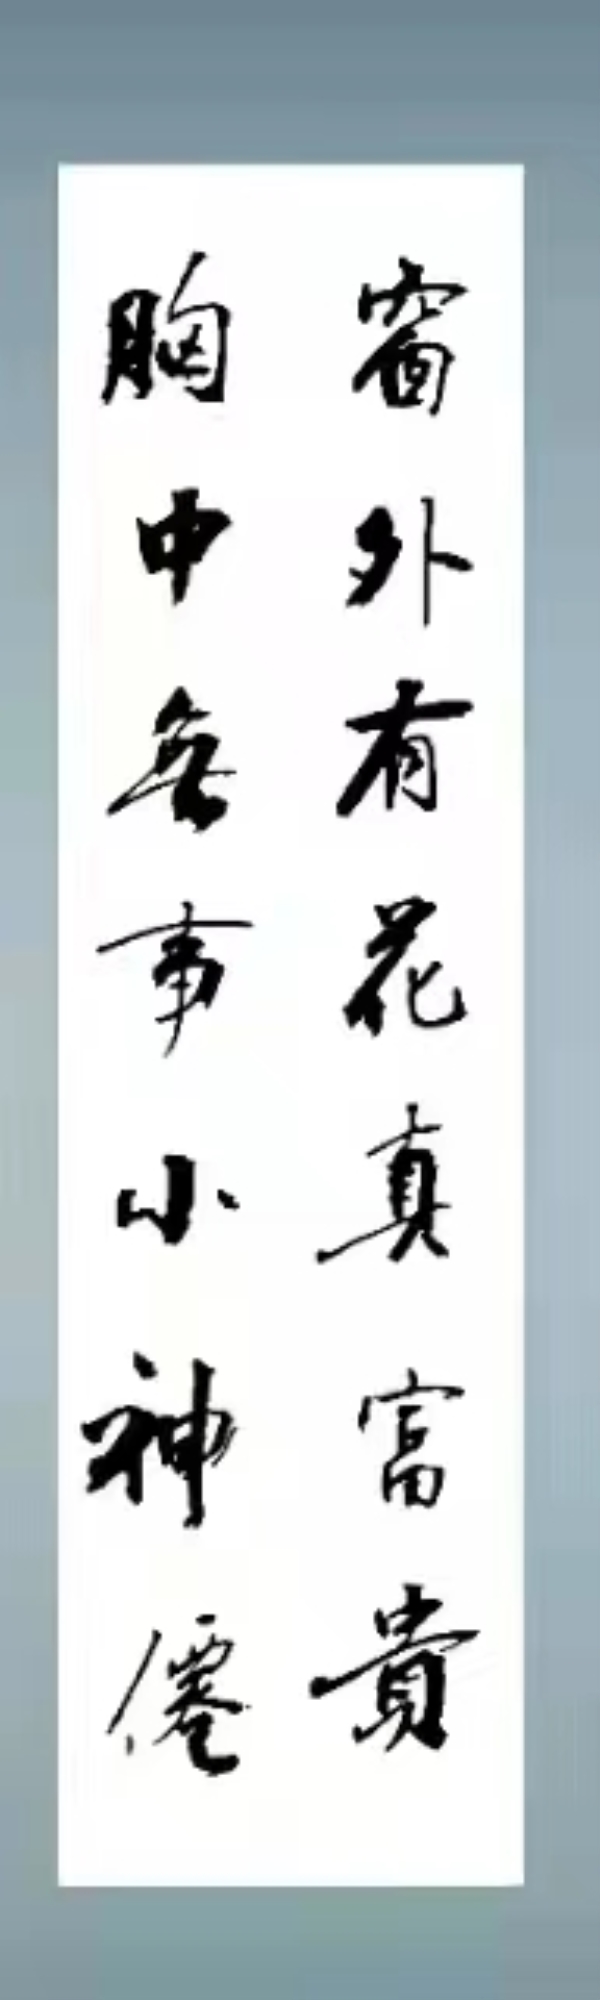 窗外有花真富貴
胸中無事小神僊